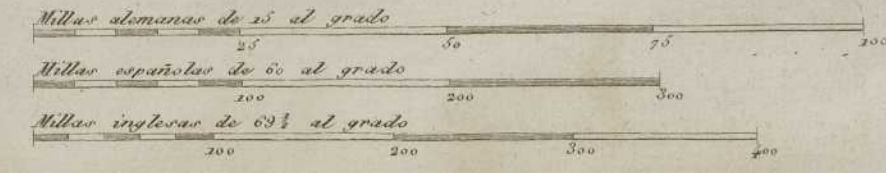 Millas alemanas de 15 al grado
25 50 75 100
Millas españolas de 60 al grado
100 200 300
Millas inglesas de 69½ al grado
100 200 300 400